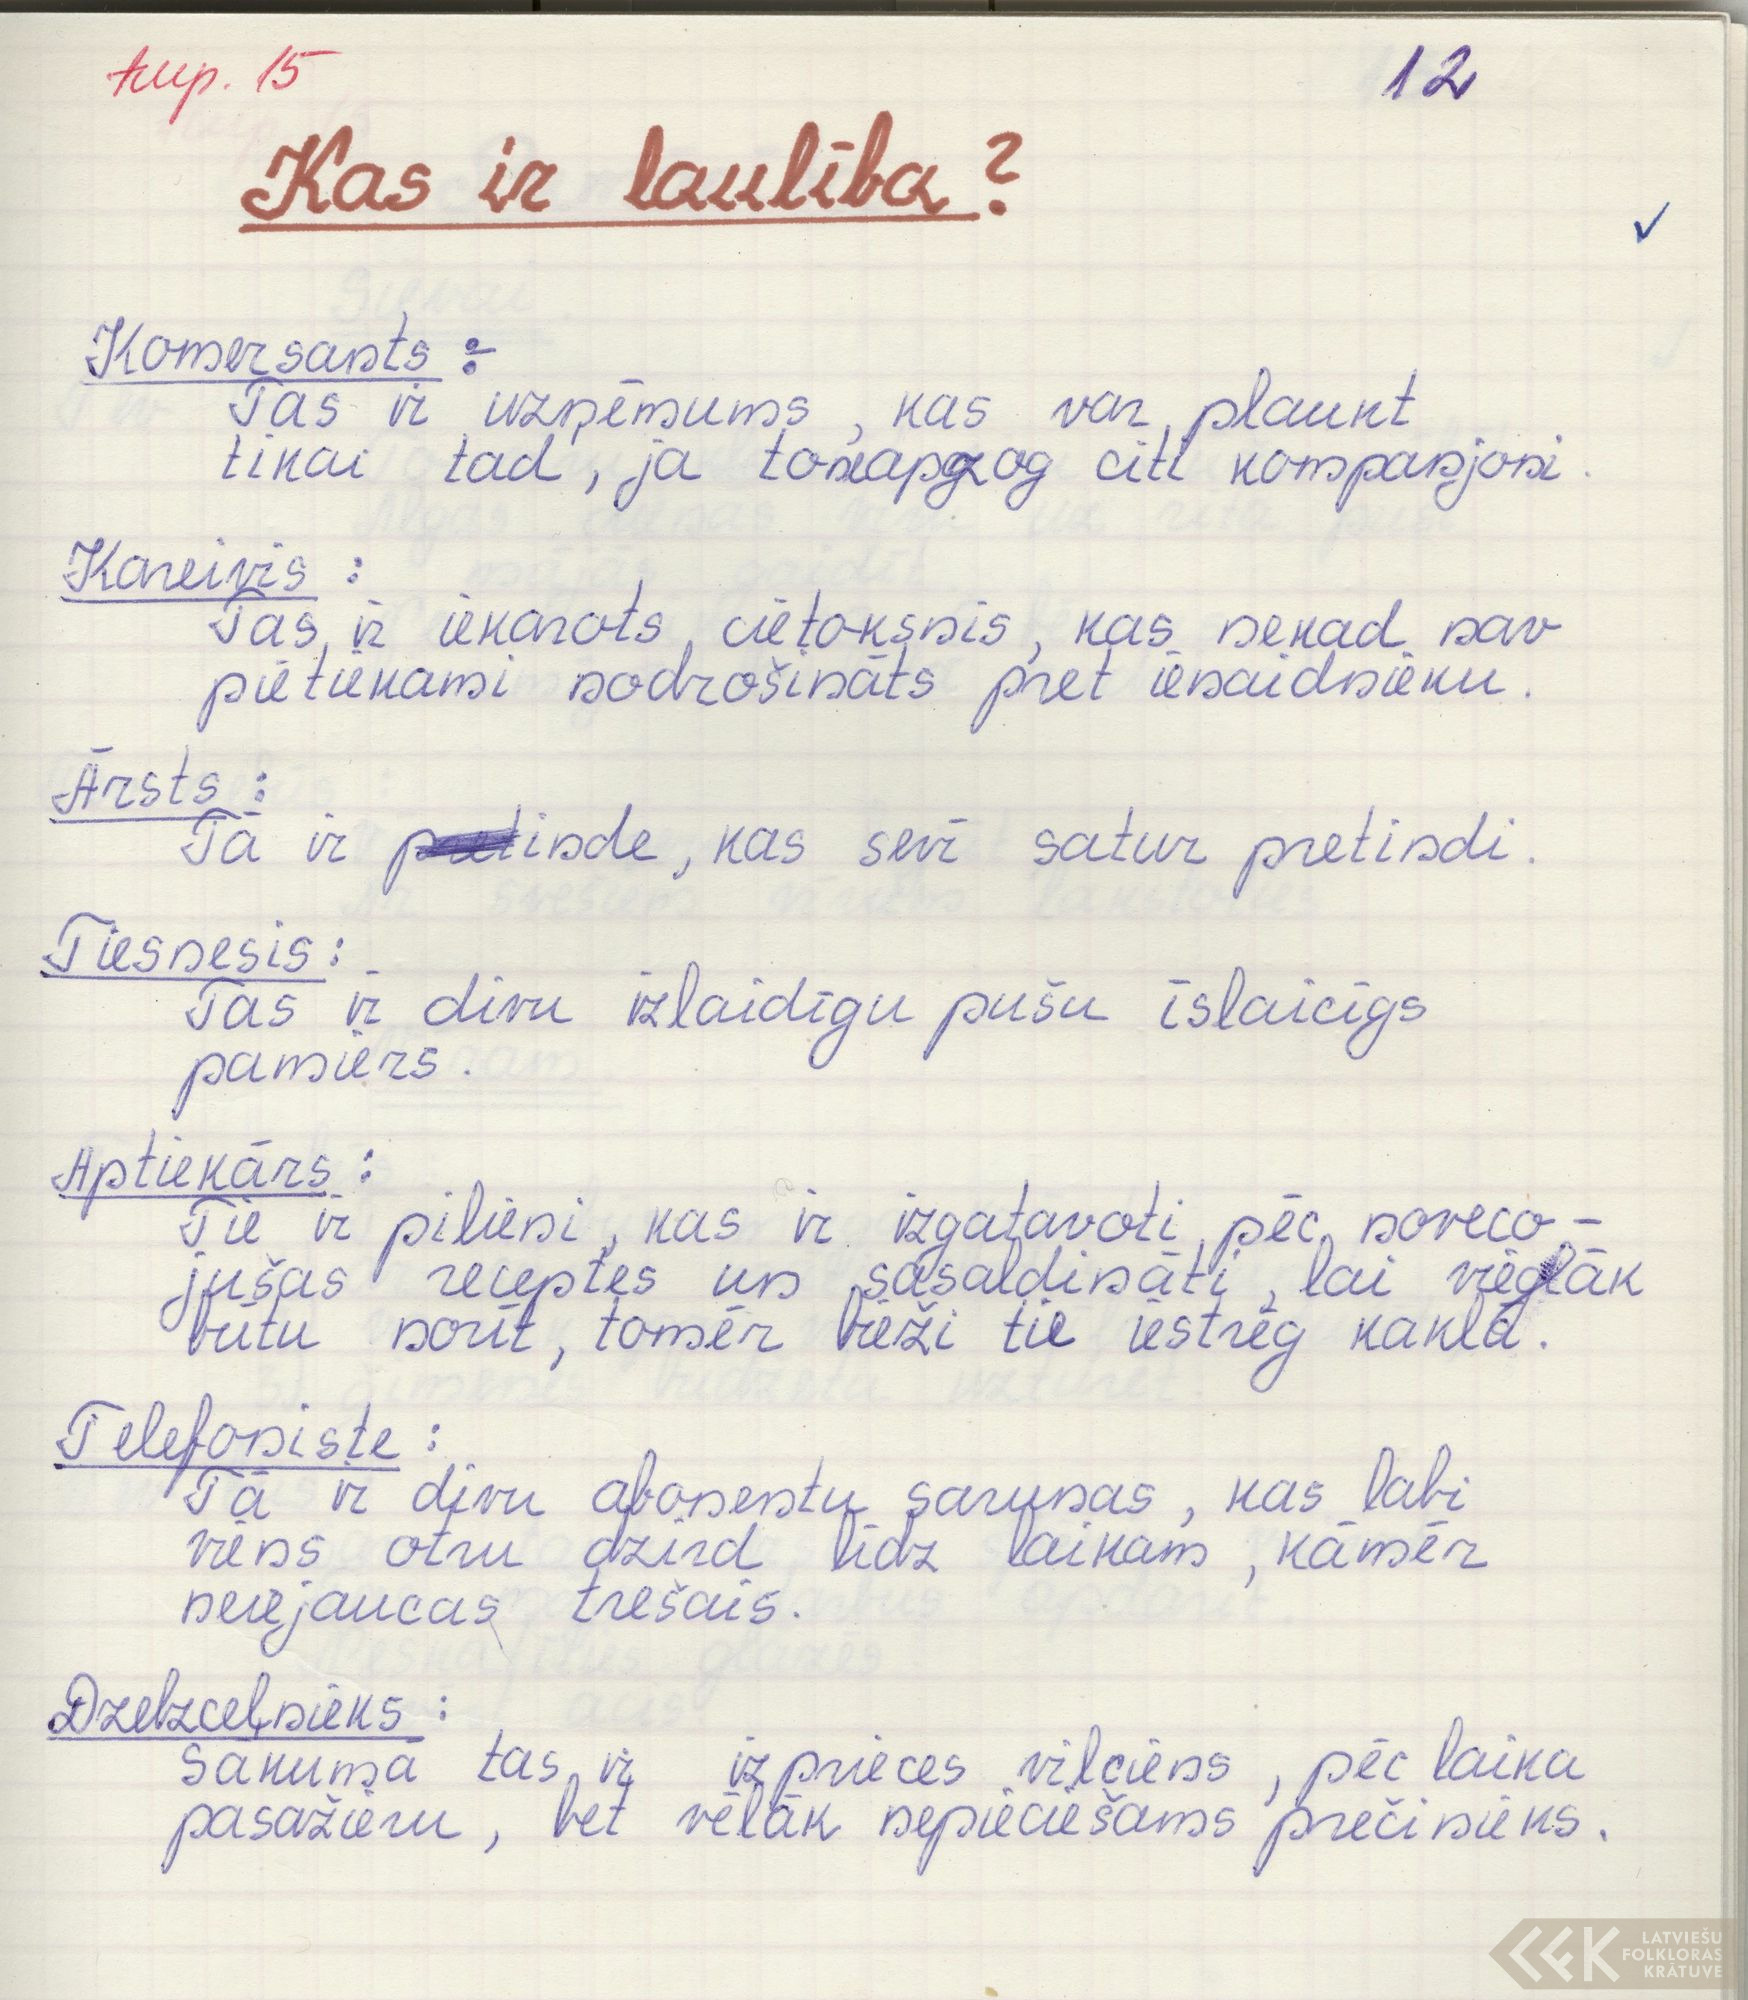 tup. 15
12
Kas ir laulība?
✓
Komersants:
Tas ir uzņēmums, kas var plaukt
tikai tad, ja to neapzog citi kompanjoni.
Kareivis:
Tas ir iekarots cietoksnis, kas nekad nav
pietiekami nodrošināts pret ienaidnieku.
Ārsts:
Tā ir inde, kas sevī satur pretindi.
Tiesnesis:
Tas ir divu izlaidīgu pušu īslaicīgs
pamiers.
Aptiekārs:
Tie ir pilieni, kas ir izgatavoti pēc noveco-
jušas receptes un sasaldināti, lai vieglāk
būtu norīt, tomēr bieži tie iestrēg kaklā.
Telefoniste:
Tā ir divu abonentu sarunas, kas labi
viens otru dzird līdz laikam, kāmēr
neiejaucas trešais.
Dzelzceļnieks:
Sakumā tas ir izprieces vilciens, pēc laika
pasažieru, bet vēlāk nepieciešams prečinieks.
LATVIEŠU
FOLKLORAS
KRĀTUVE